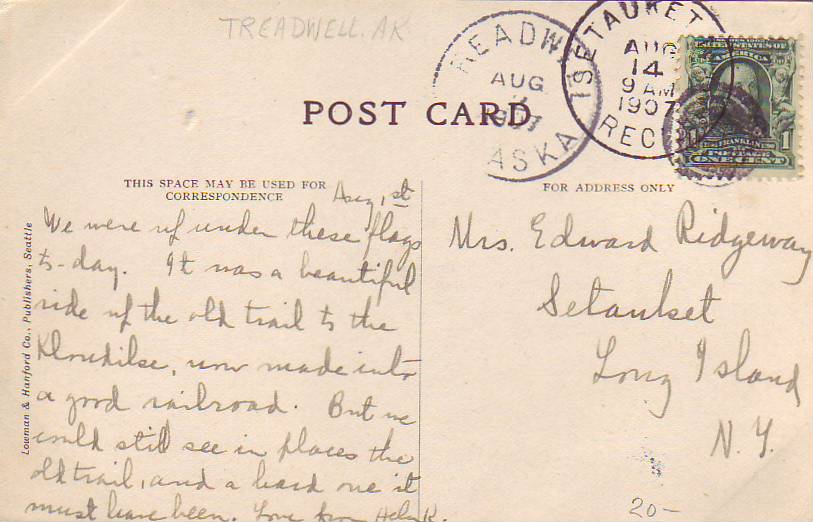 TREADWELL. AK
READW
AUG
1907
ASKA
SETAUKET
AUG
14
9 AM
1907
REC
UNITED STATES OF
AMERICA
FRANKLIN
POSTAGE
1 1
ONE CENT
POST CARD
THIS SPACE MAY BE USED FOR
CORRESPONDENCE
FOR ADDRESS ONLY
Aug, 1st
We were up under these flags
to-day. It was a beautiful
ride up the old trail to the
Klondike, now made into
a good railroad. But we
could still see in places the
old trail, and a hard one it
must have been. Love from Helen K.
Mrs. Edward Ridgeway
Setauket
Long Island
N. Y.
20-
Lowman & Hanford Co., Publishers, Seattle